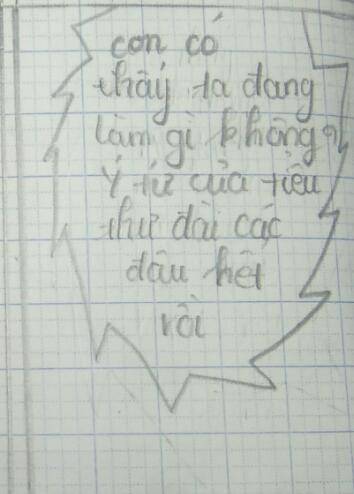 con có
thấy ta đang
làm gì không?
Ý tứ của tiểu
thư đài các
đâu hết
rồi